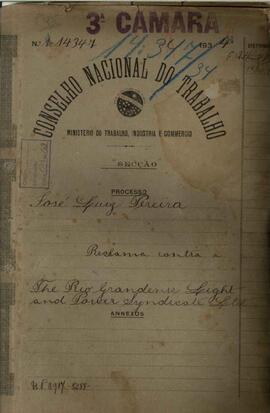 3ª CAMARA
N. 14347
14.347
193
34
CONSELHO NACIONAL DO TRABALHO
MINISTERIO DO TRABALHO, INDUSTRIA E COMMERCIO
SECÇÃO
PROCESSO
José Luiz Pereira
Reclama contra a
The Rio Grandense Light
and Power Syndicate Ltd
ANNEXOS